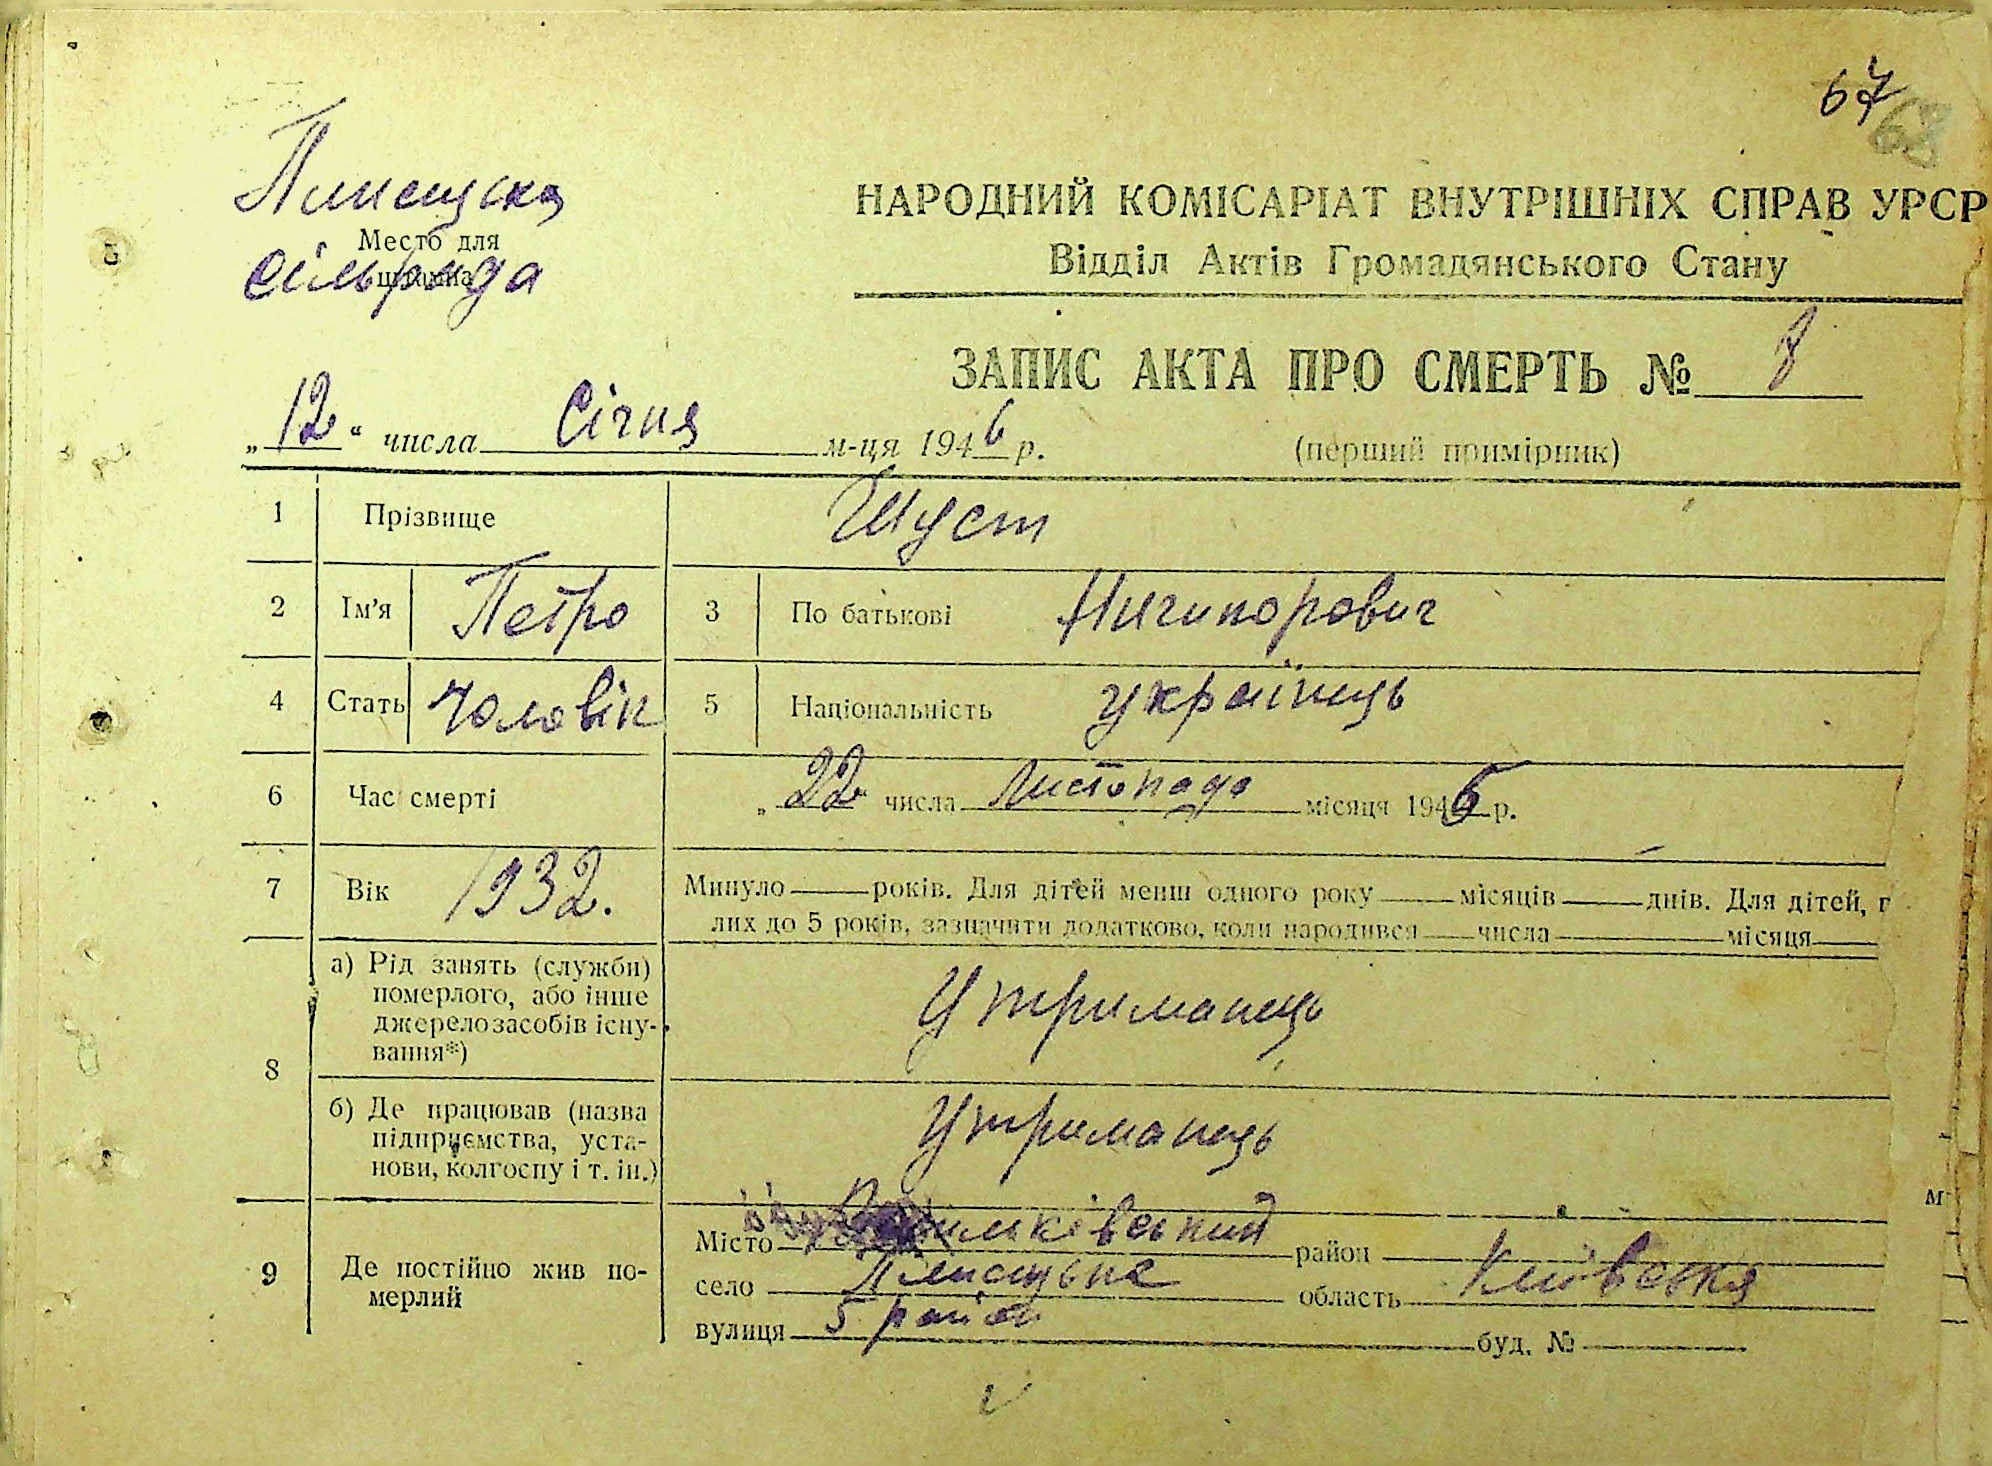 67
68
Плисецька
Место для
штампа
сільрада
НАРОДНИЙ КОМІСАРІАТ ВНУТРІШНІХ СПРАВ УРСР
Відділ Актів Громадянського Стану
ЗАПИС АКТА ПРО СМЕРТЬ № 8
„12“ числа Січня м-ця 1946 р.
(перший примірник)
1 Прізвище Шуст
2 Ім’я Петро 3 По батькові Ничипорович
4 Стать Чоловік 5 Національність українець
6 Час смерті „22“ числа Листопада місяця 1945 р.
7 Вік 1932. Минуло років. Для дітей менш одного року місяців днів. Для дітей, п
лих до 5 років, зазначити додатково, коли народився числа місяця
8 а) Рід занять (служби)
померлого, або інше
джерело засобів існу-
вання*)
Утриманець
б) Де працював (назва
підприємства, уста-
нови, колгоспу і т. ін.)
Утриманець
9 Де постійно жив по-
мерлий
Місто район
село Плисецьке область Київська
вулиця 5 район буд. №
м